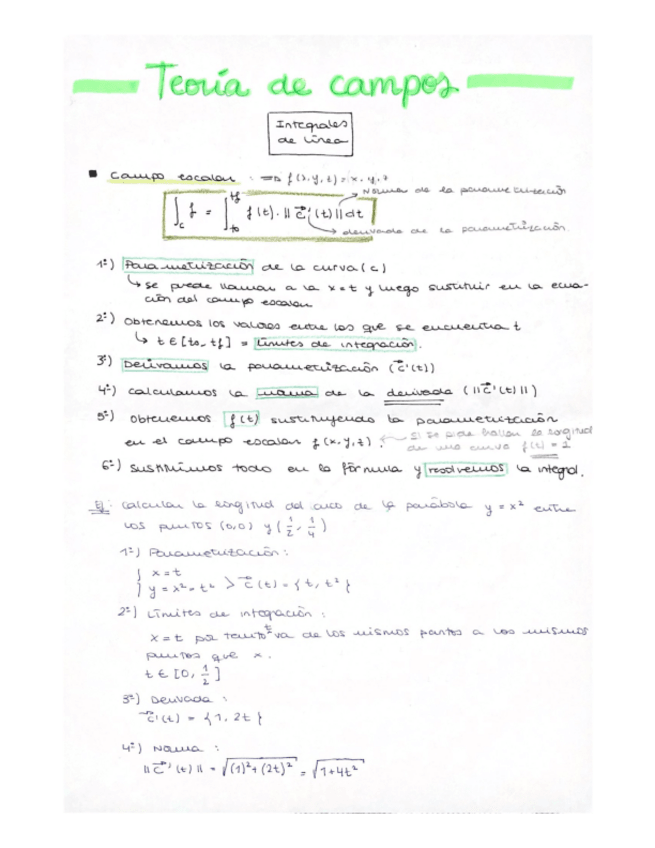 Teoría de campos
Integrales
de línea
▪ Campo escalar : ⇒ f(x,y,z) = x·y·z
→ Norma de la parametrización
∫_c f = ∫_{t0}^{tf} f(t) · || c⃗'(t) || dt
→ derivada de la parametrización.
1º) Parametrización de la curva (c)
↳ se puede llamar a la x=t y luego sustituir en la ecua-
ción del campo escalar
2º) Obtenemos los valores entre los que se encuentra t
↳ t ∈ [t0, tf] = límites de integración.
3º) Derivamos la parametrización (c⃗'(t))
4º) calculamos la norma de la derivada (||c⃗'(t)||)
5º) obtenemos f(t) sustituyendo la parametrización
en el campo escalar f(x,y,z). ← Si se pide hallar la longitud
de una curva f(t) = 1
6º) sustituimos todo en la fórmula y resolvemos la integral.
Ej: calcular la longitud del arco de la parábola y = x² entre
los puntos (0,0) y (1/2, 1/4)
1º) Parametrización :
{ x = t
y = x² = t² > c⃗(t) = {t, t²}
2º) Límites de integración :
x = t por tanto t va de los mismos puntos a los mismos
puntos que x.
t ∈ [0, 1/2]
3º) Derivada :
c⃗'(t) = {1, 2t}
4º) Norma :
|| c⃗'(t) || = √((1)² + (2t)²) = √(1+4t²)